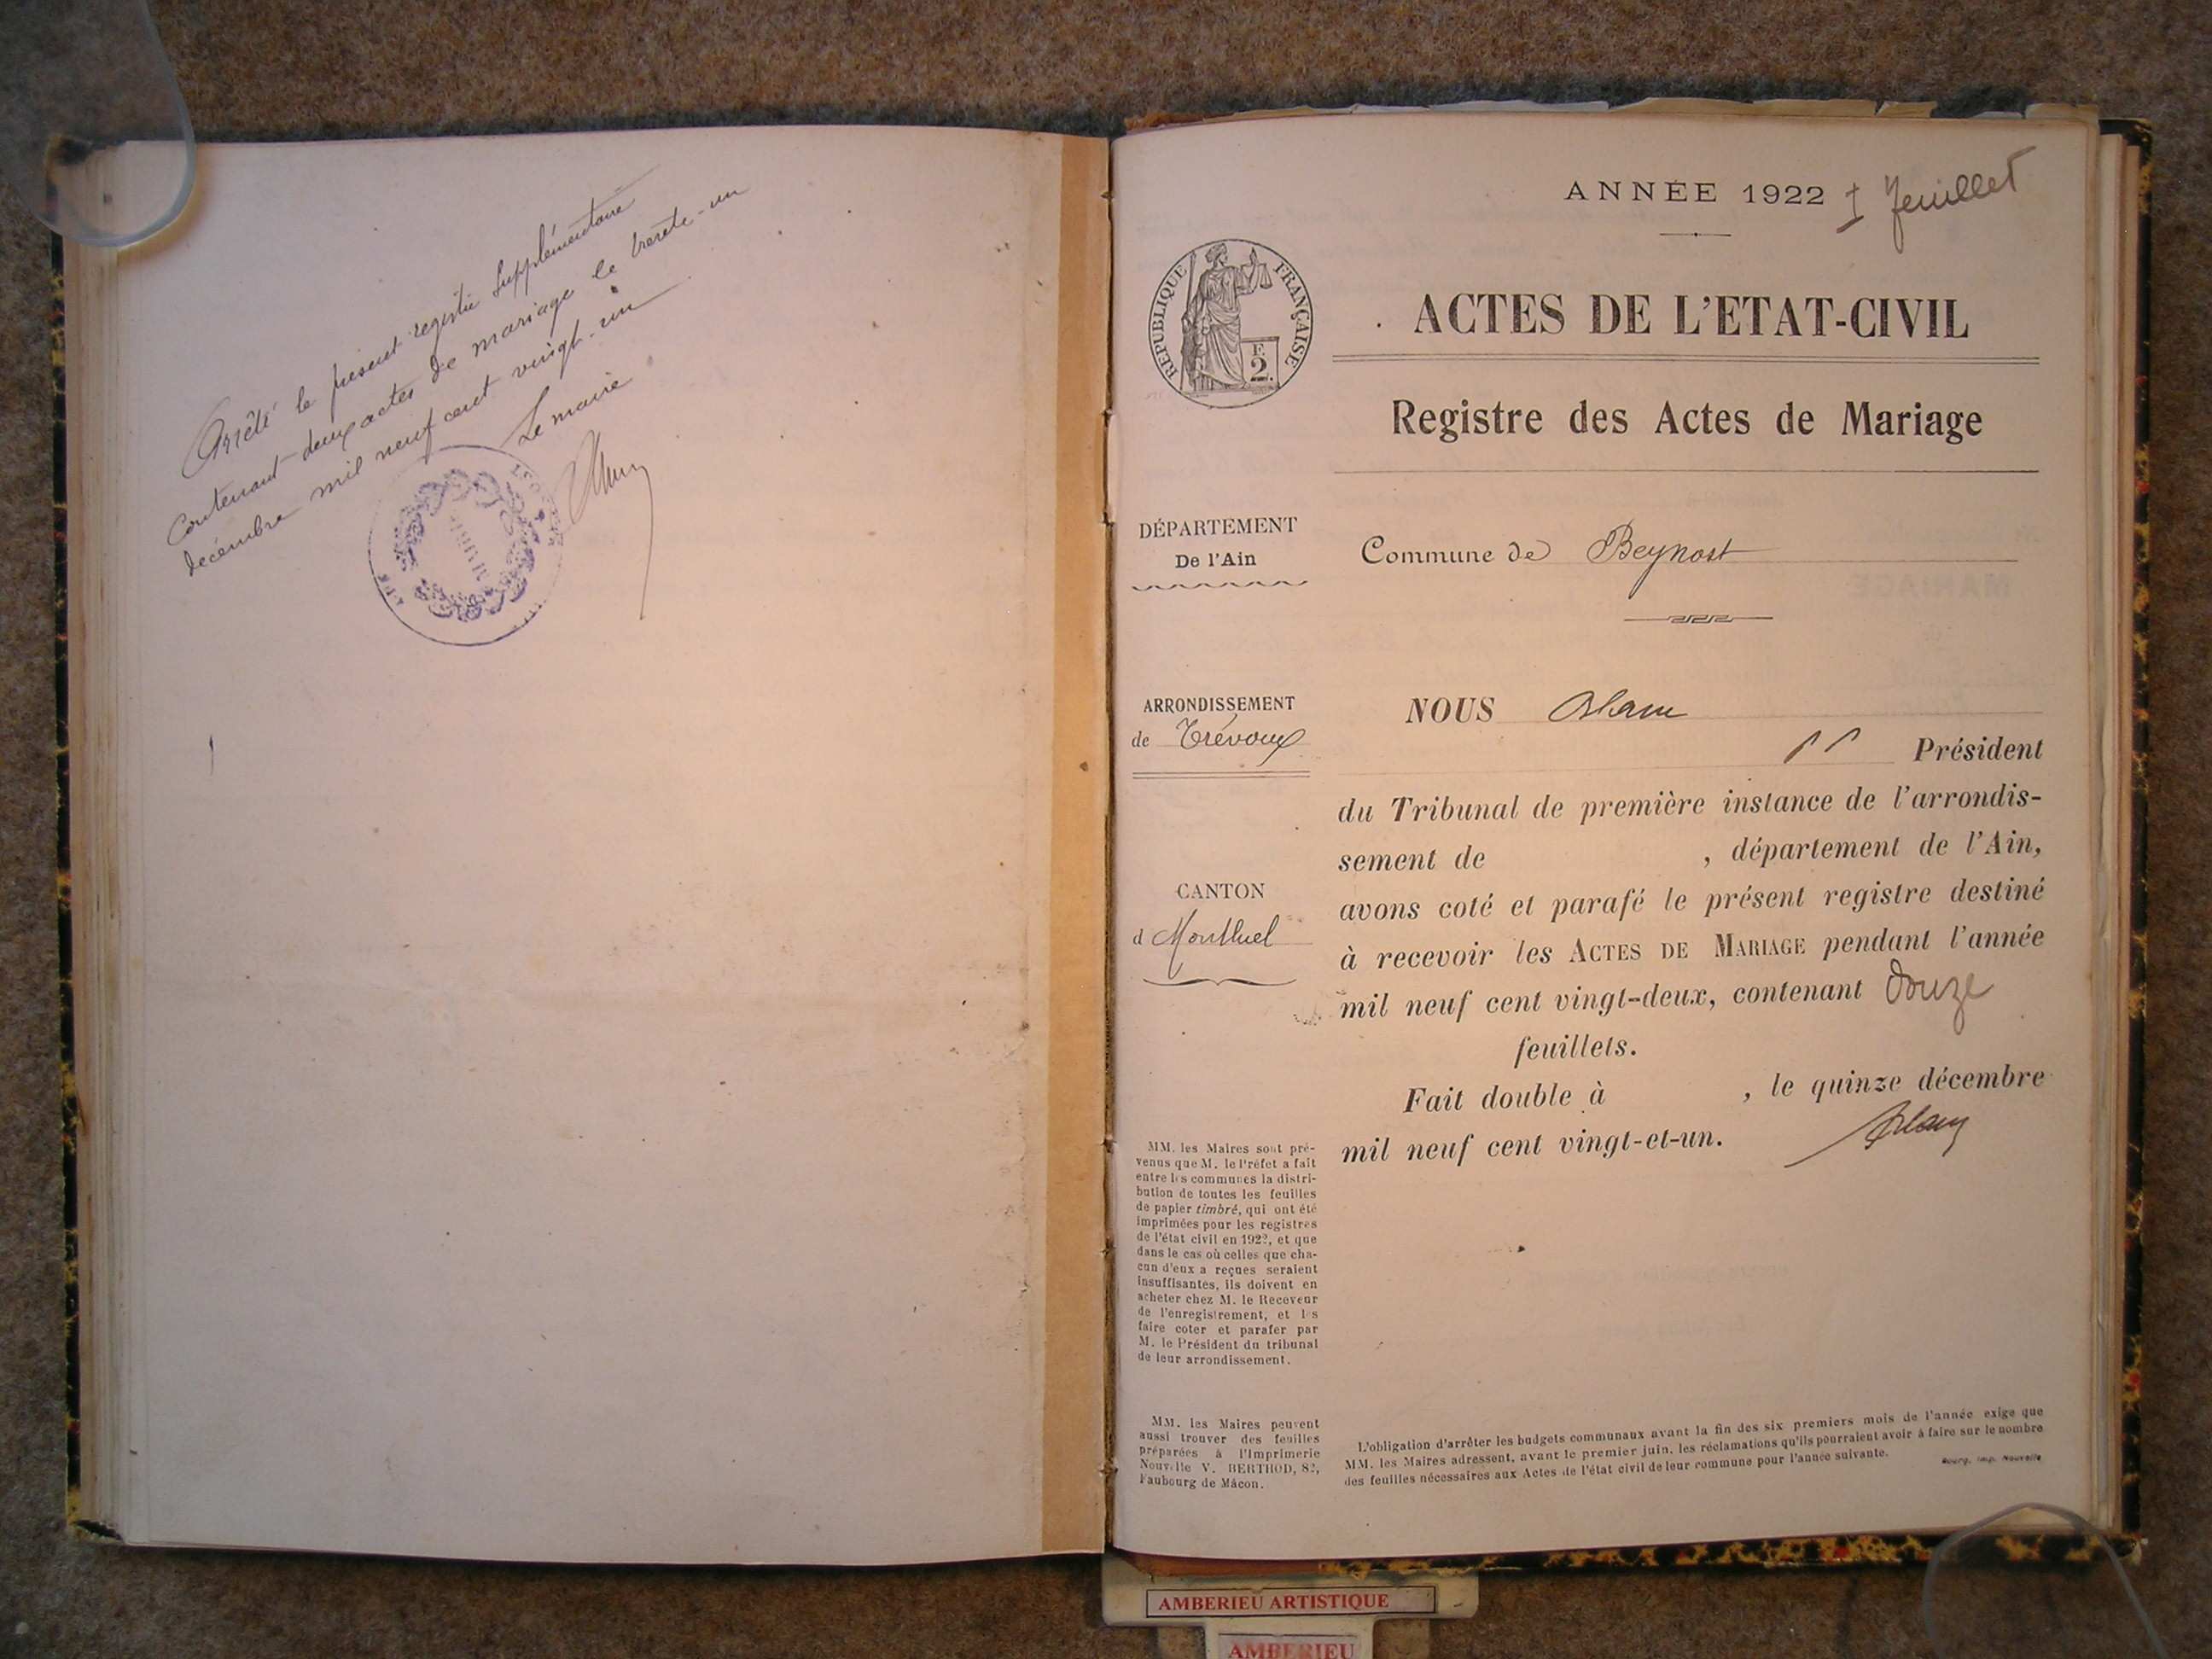 Arrêté le présent registre supplémentaire
Contenant deux actes de mariage le trente-un
décembre mil neuf cent vingt-un
Le maire
MAIRIE
ANNÉE 1922 1 feuillet
REPUBLIQUE FRANÇAISE
F.
2.
ACTES DE L'ETAT-CIVIL
Registre des Actes de Mariage
DÉPARTEMENT
De l'Ain
Commune de Beynost
ARRONDISSEMENT
de Trévoux
CANTON
d Montluel
NOUS
Président
du Tribunal de première instance de l'arrondis-
sement de , département de l'Ain,
avons coté et parafé le présent registre destiné
à recevoir les ACTES DE MARIAGE pendant l'année
mil neuf cent vingt-deux, contenant douze
feuillets.
Fait double à , le quinze décembre
mil neuf cent vingt-et-un.
MM. les Maires sont pré-
venus que M. le Préfet a fait
entre les communes la distri-
bution de toutes les feuilles
de papier timbré, qui ont été
imprimées pour les registres
de l'état civil en 1922, et que
dans le cas où celles que cha-
cun d'eux a reçues seraient
insuffisantes, ils doivent en
acheter chez M. le Receveur
de l'enregistrement, et les
faire coter et parafer par
M. le Président du tribunal
de leur arrondissement.
MM. les Maires peuvent
aussi trouver des feuilles
préparées à l'Imprimerie
Nouvelle V. BERTHOD, 82,
Faubourg de Mâcon.
L'obligation d'arrêter les budgets communaux avant la fin des six premiers mois de l'année exige que
MM. les Maires adressent, avant le premier juin, les réclamations qu'ils pourraient avoir à faire sur le nombre
des feuilles nécessaires aux Actes de l'état civil de leur commune pour l'année suivante.
Bourg, Imp. Nouvelle
AMBERIEU ARTISTIQUE
AMBERIEU